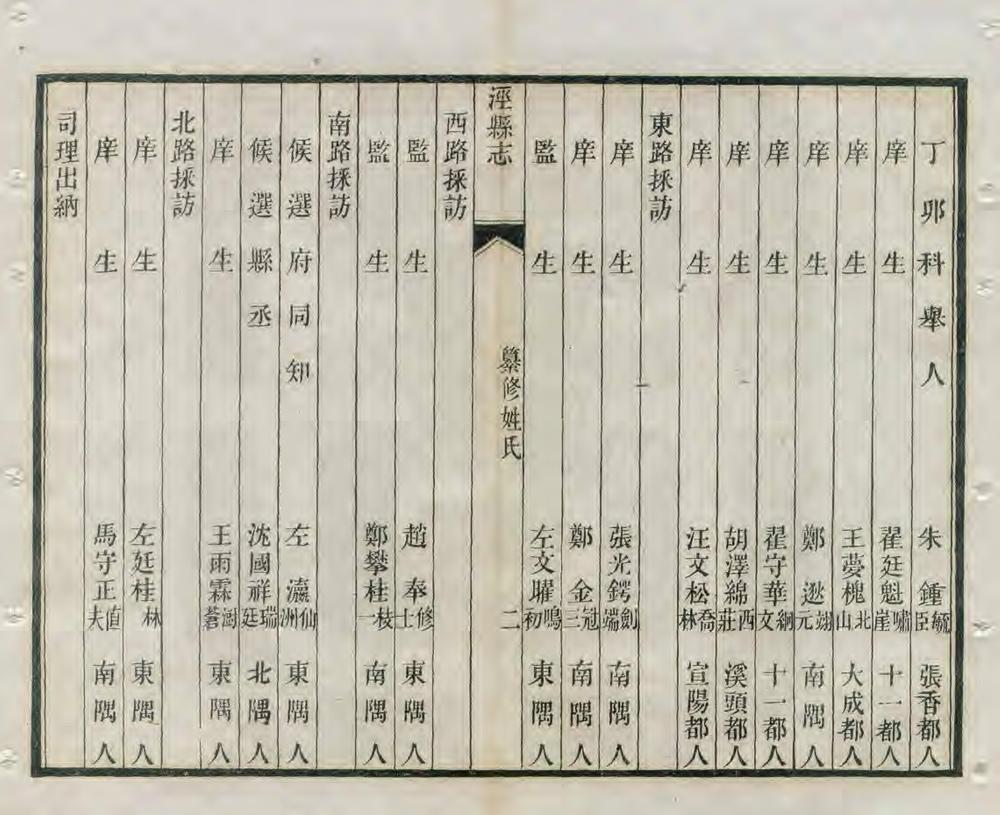 丁卯科舉人 朱鍾毓臣 張香都人
庠生 翟廷魁嘯崖 十一都人
庠生 王夢槐北山 大成都人
庠生 鄭逖翊元 南隅人
庠生 翟守華絅文 十一都人
庠生 胡澤綿西莊 溪頭都人
庠生 汪文松喬林 宣陽都人
東路採訪
庠生 張光鍔劍端 南隅人
庠生 鄭金冠三 南隅人
監生 左文曜鳴初 東隅人
涇縣志 纂修姓氏 二
西路採訪
監生 趙奉修士 東隅人
監生 鄭攀桂枝一 南隅人
南路採訪
候選府同知 左瀛仙洲 東隅人
候選縣丞 沈國祥瑞廷 北隅人
庠生 王雨霖蒼 東隅人
北路採訪
庠生 左廷桂林 東隅人
庠生 馬守正值夫 南隅人
司理出納